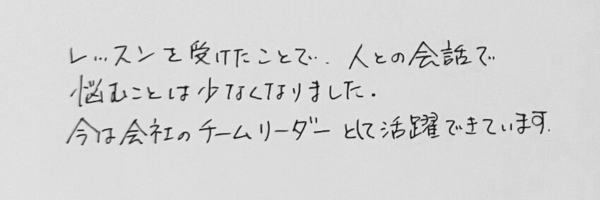 レッスンを受けたことで、人との会話で
悩むことは少なくなりました。
今は会社のチームリーダーとして活躍できています。